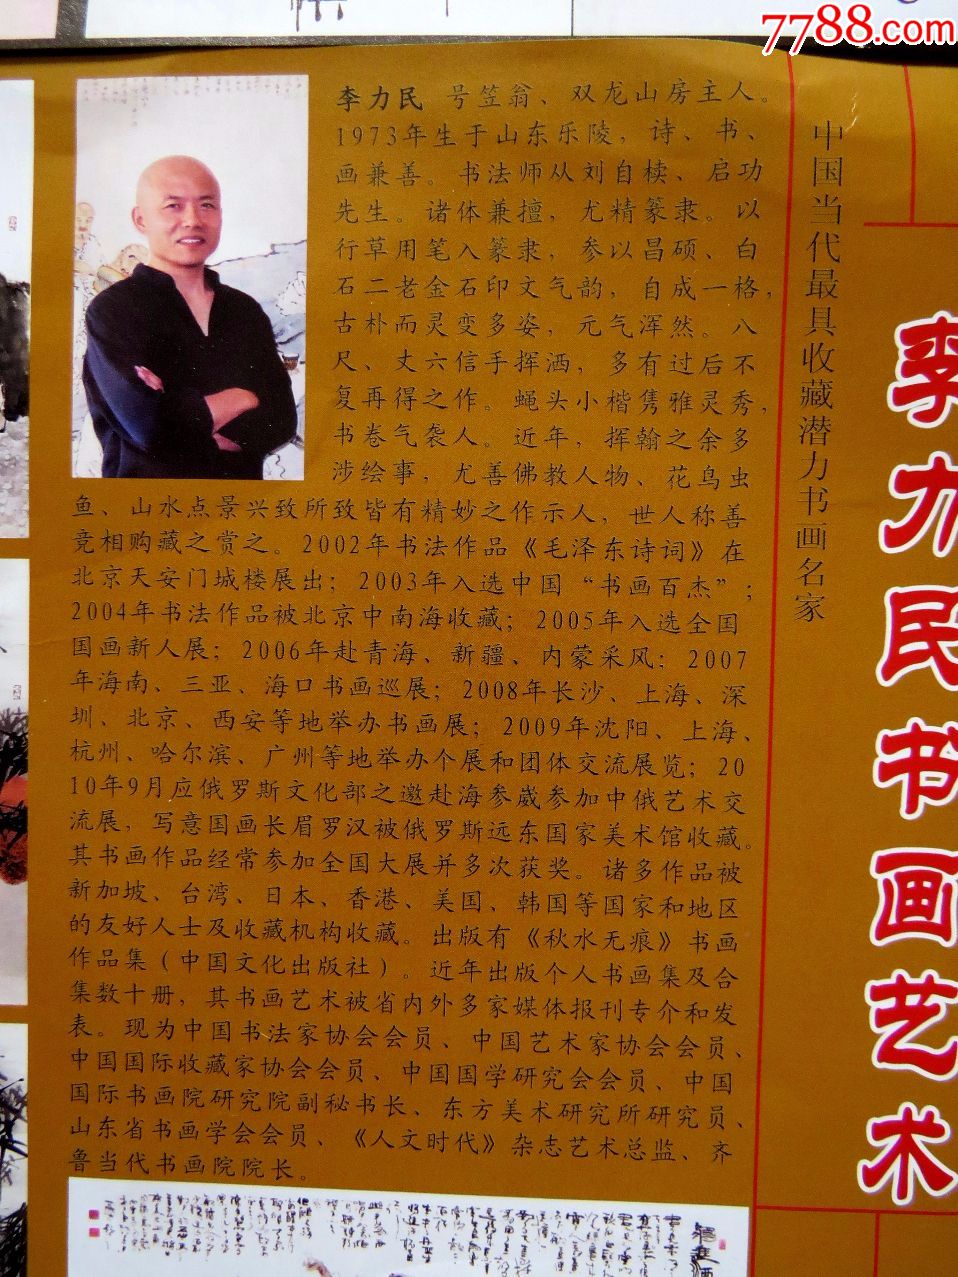 7788.com
李力民 号笠翁、双龙山房主人。
1973年生于山东乐陵，诗、书、
画兼善。书法师从刘自椟、启功
先生。诸体兼擅，尤精篆隶。以
行草用笔入篆隶，参以昌硕、白
石二老金石印文气韵，自成一格，
古朴而灵变多姿，元气浑然。八
尺、丈六信手挥洒，多有过后不
复再得之作。蝇头小楷隽雅灵秀，
书卷气袭人。近年，挥翰之余多
涉绘事，尤善佛教人物、花鸟虫
鱼、山水点景兴致所致皆有精妙之作示人，世人称善
竞相购藏之赏之。2002年书法作品《毛泽东诗词》在
北京天安门城楼展出；2003年入选中国“书画百杰”；
2004年书法作品被北京中南海收藏；2005年入选全国
国画新人展；2006年赴青海、新疆、内蒙采风；2007
年海南、三亚、海口书画巡展；2008年长沙、上海、深
圳、北京、西安等地举办书画展；2009年沈阳、上海、
杭州、哈尔滨、广州等地举办个展和团体交流展览；20
10年9月应俄罗斯文化部之邀赴海参崴参加中俄艺术交
流展，写意国画长眉罗汉被俄罗斯远东国家美术馆收藏。
其书画作品经常参加全国大展并多次获奖。诸多作品被
新加坡、台湾、日本、香港、美国、韩国等国家和地区
的友好人士及收藏机构收藏。出版有《秋水无痕》书画
作品集（中国文化出版社）。近年出版个人书画集及合
集数十册，其书画艺术被省内外多家媒体报刊专介和发
表。现为中国书法家协会会员、中国艺术家协会会员、
中国国际收藏家协会会员、中国国学研究会会员、中国
国际书画院研究院副秘书长、东方美术研究所研究员、
山东省书画学会会员、《人文时代》杂志艺术总监、齐
鲁当代书画院院长。
中国当代最具收藏潜力书画名家
李力民书画艺术